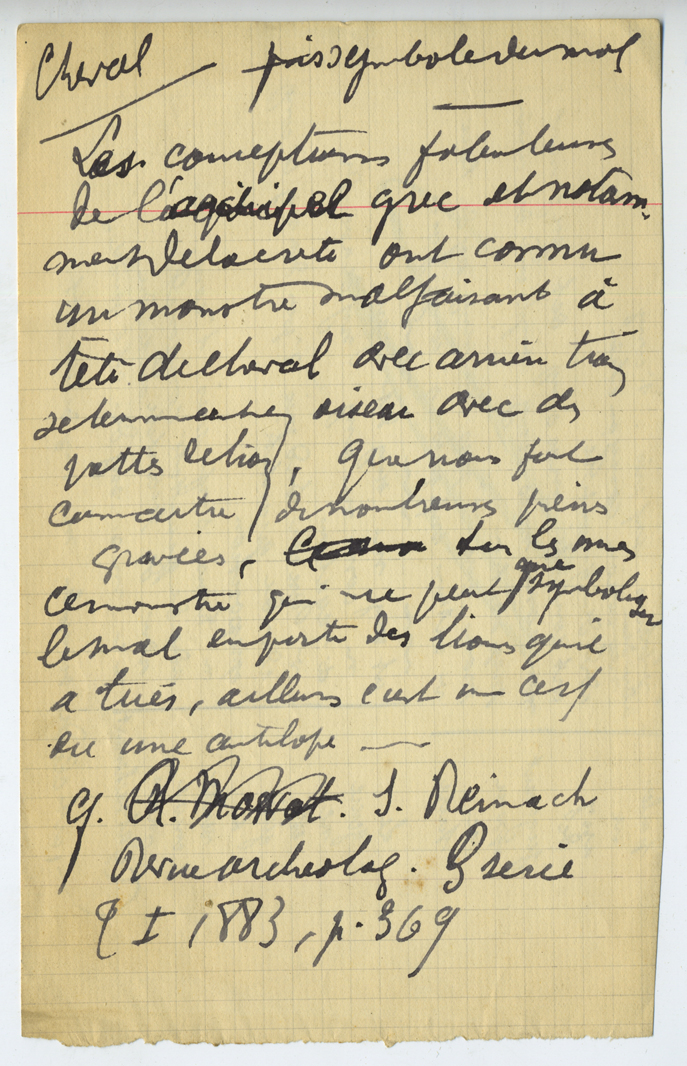 Cheval pris symbole du mal
Les conceptions fabuleuses
de l'archipel grec et notam-
ment de la crète ont connu
un monstre malfaisant à
tête de cheval avec arrière train
se terminant en oiseau avec des
pattes de lion, que nous fait
connaitre de nombreuses pierres
gravées, sur les unes
ce monstre qui ne peut que symboliser
le mal emporte des lions qu'il
a tués, ailleurs c'est un cerf
ou une antilope —
cf. A. Mowat. S. Reinach
Revue archéolog. 3 serie
T I, 1883, p. 369